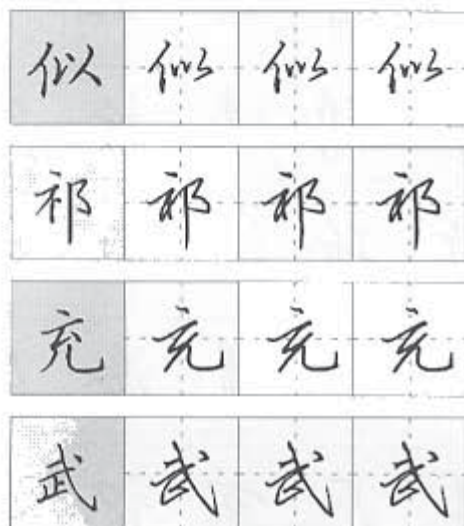 似似似似
祁祁祁祁
充充充充
武武武武